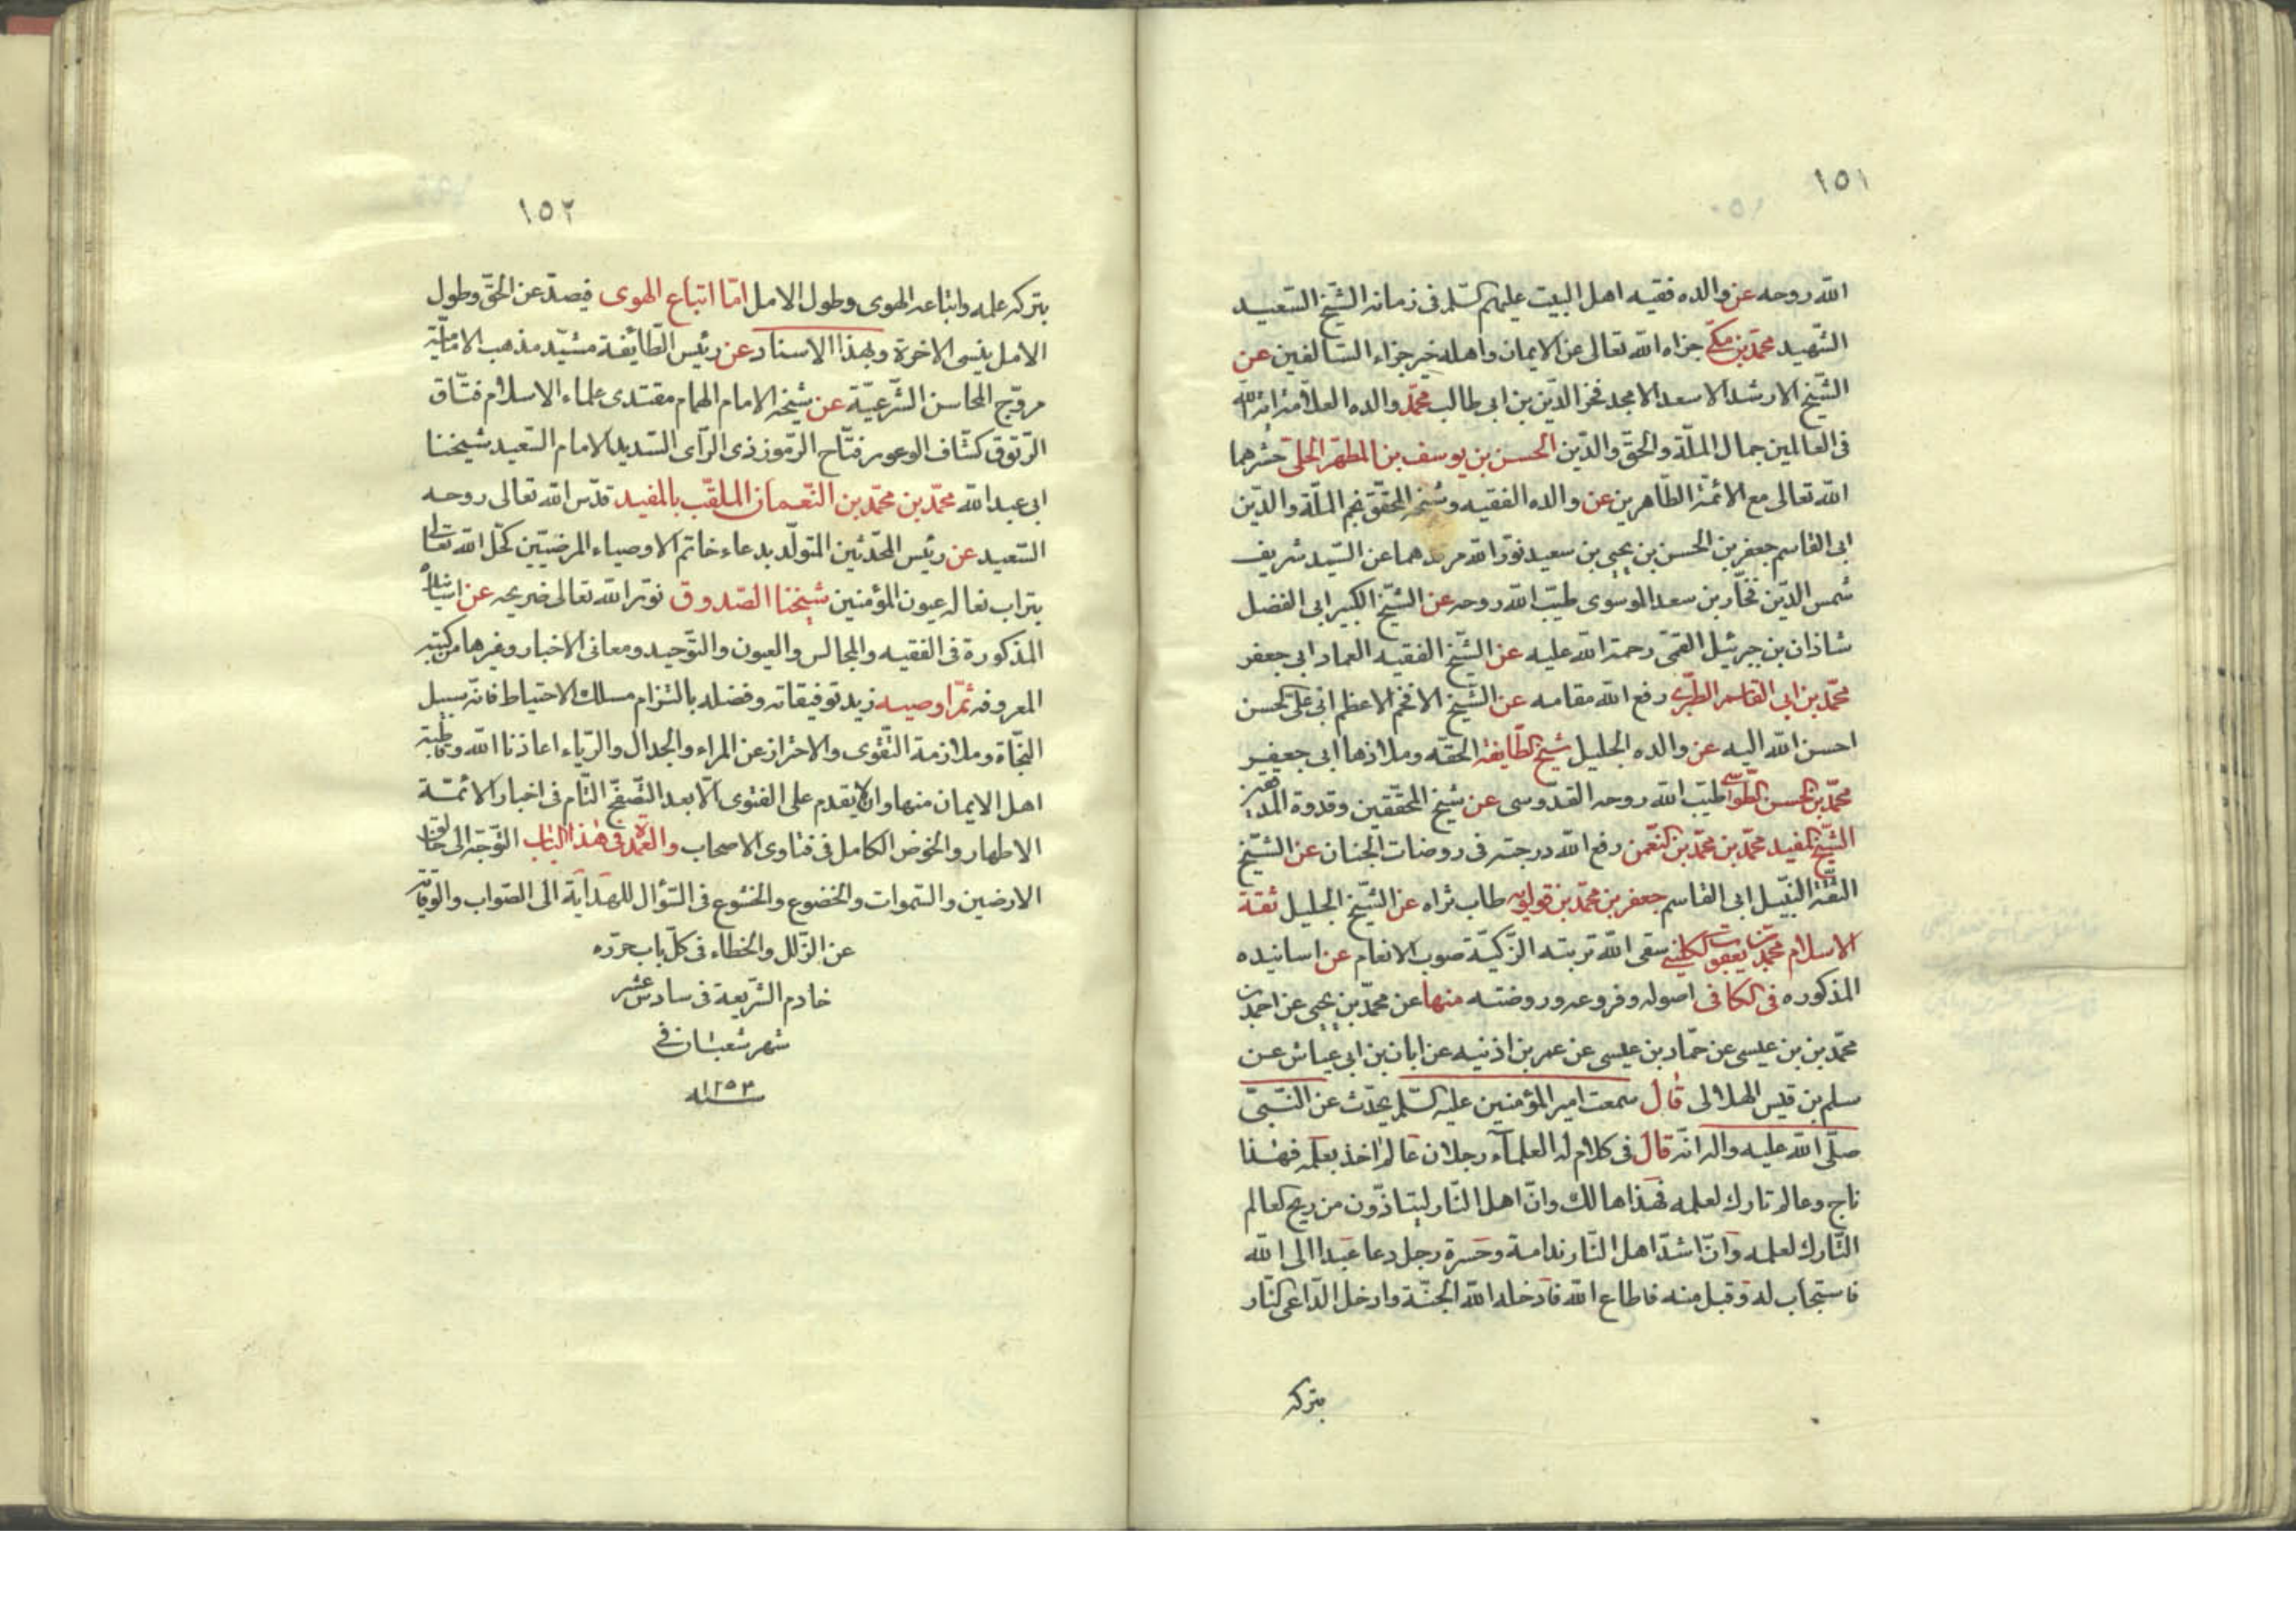 ١٥١
الله روحه عن والده فقيه اهل البيت عليهم السلم فى زمانه الشيخ السعيد
الشهيد محمد بن مكى جزاه الله تعالى عن الايمان واهله خير جزاء السالفين عن
الشيخ الارشد الاسعد الامجد فخر الدين بن ابى طالب محمد والده العلامة اية الله
فى العالمين جمال الملة والحق والدين الحسن بن يوسف بن المطهر الحلى حشرهما
الله تعالى مع الائمة الطاهرين عن والده الفقيه وشيخه المحقق نجم الملة والدين
ابى القاسم جعفر بن الحسن بن يحيى بن سعيد نور الله مرقدهما عن السيد شريف
شمس الدين فخار بن سعد الموسوى طيب الله روحه عن الشيخ الكبير ابى الفضل
شاذان بن جبرئيل القمى رحمة الله عليه عن الشيخ الفقيه العماد ابى جعفر
محمد بن ابى القاسم الطبرى رفع الله مقامه عن الشيخ الافخم الاعظم ابى على الحسن
احسن الله اليه عن والده الجليل شيخ الطايفة الحقه وملاذها ابى جعفر
محمد بن الحسن الطوسى طيب الله روحه القدوسى عن شيخ المحققين وقدوة
الشيخ المفيد محمد بن محمد بن النعمن رفع الله درجته فى روضات الجنان عن الشيخ
الثقة النبيل ابى القاسم جعفر بن محمد بن قولويه طاب ثراه عن الشيخ الجليل ثقة
الاسلام محمد بن يعقوب الكلينى سقى الله تربته الزكية صوب الانعام عن اسانيده
المذكوره فى الكافى اصوله وفروعه وروضته منها عن محمد بن يحيى عن احمد بن
محمد بن بن عيسى عن حماد بن عيسى عن عمر بن اذنيه عن ابان بن ابى عياش عن
سلم بن قيس الهلالى قال سمعت امير المؤمنين عليه السلم يحدث عن النبى
صلى الله عليه واله انه قال فى كلام له العلماء رجلان عالم اخذ بعلمه فهذا
ناج وعالم تارك لعلمه فهذا هالك وان اهل النار ليتاذون من ريح العالم
التارك لعلمه وان اشد اهل النار ندامة وحسرة رجل دعا عبدا الى الله
فاستجاب له وقبل منه فاطاع الله فادخله الله الجنة وادخل الداعى النار
بتركه
١٥٢
بتركه علمه واتباعه الهوى وطول الامل اما اتباع الهوى فيصد عن الحق وطول
الامل ينسى الاخرة وبهذا الاسناد عن رئيس الطايفة مشيد مذهب الامامية
مروج المحاسن الشرعية عن شيخه الامام الهمام مقتدى علماء الاسلام فتاق
الرتوق كشاف الوعوم فتاح الرموز ذى الراى السديد الامام السعيد شيخنا
ابى عبد الله محمد بن محمد بن النعمان الملقب بالمفيد قدس الله تعالى روحه
السعيد عن رئيس المحدثين المتولد بدعاء خاتم الاوصياء المرضيين كحل الله تعالى
بتراب نعاله عيون المؤمنين شيخنا الصدوق نور الله تعالى ضريحه عن اشياخه
المذكورة فى الفقيه والمجالس والعيون والتوحيد ومعانى الاخبار وغيرها من كتبه
المعروفه ثم اوصيه زيد توفيقاته وفضله بالتزام مسلك الاحتياط فانه سبيل
النجاة وملازمة التقوى والاحتراز عن المراء والجدال والرياء اعاذنا الله وقاطبة
اهل الايمان منها وان لا يقدم على الفتوى الا بعد التصفح التام فى اخبار الائمة
الاطهار والخوض الكامل فى فتاوى الاصحاب والعمدة فى هذا الباب التوجه الى خالق
الارضين والسموات والخضوع والخشوع فى السؤال للهداية الى الصواب والوقاية
عن الزلل والخطاء فى كل باب حرره
خادم الشريعة فى سادس عشر
شهر شعبان فى
سنة ١٢٥٣